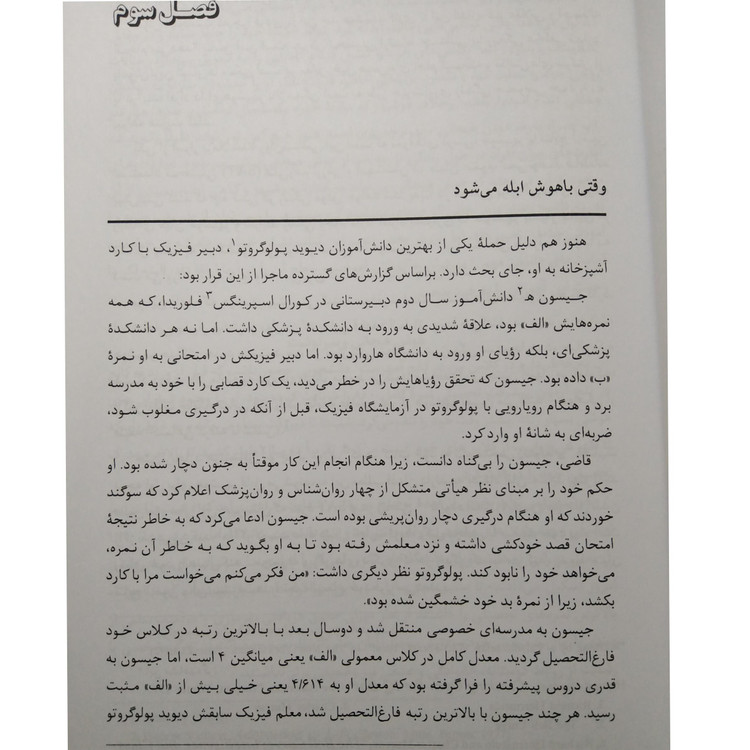 فصل سوم
وقتی باهوش ابله می‌شود
هنوز هم دلیل حملهٔ یکی از بهترین دانش‌آموزان دیوید پولوگروتو۱، دبیر فیزیک با کارد
آشپزخانه به او، جای بحث دارد. براساس گزارش‌های گسترده ماجرا از این قرار بود:
جیسون هـ۲ دانش‌آموز سال دوم دبیرستانی در کورال اسپرینگس۳ فلوریدا، که همه
نمره‌هایش «الف» بود، علاقهٔ شدیدی به ورود به دانشکدهٔ پزشکی داشت. اما نه هر دانشکدهٔ
پزشکی‌ای، بلکه رؤیای او ورود به دانشگاه هاروارد بود. اما دبیر فیزیکش در امتحانی به او نمرهٔ
«ب» داده بود. جیسون که تحقق رؤیاهایش را در خطر می‌دید، یک کارد قصابی را با خود به مدرسه
برد و هنگام رویارویی با پولوگروتو در آزمایشگاه فیزیک، قبل از آنکه در درگیری مغلوب شود،
ضربه‌ای به شانهٔ او وارد کرد.
قاضی، جیسون را بی‌گناه دانست، زیرا هنگام انجام این کار موقتاً به جنون دچار شده بود. او
حکم خود را بر مبنای نظر هیأتی متشکل از چهار روان‌شناس و روان‌پزشک اعلام کرد که سوگند
خوردند که او هنگام درگیری دچار روان‌پریشی بوده است. جیسون ادعا می‌کرد که به خاطر نتیجهٔ
امتحان قصد خودکشی داشته و نزد معلمش رفته بود تا به او بگوید که به خاطر آن نمره،
می‌خواهد خود را نابود کند. پولوگروتو نظر دیگری داشت: «من فکر می‌کنم می‌خواست مرا با کارد
بکشد، زیرا از نمرهٔ بد خود خشمگین شده بود».
جیسون به مدرسه‌ای خصوصی منتقل شد و دوسال بعد با بالاترین رتبه در کلاس خود
فارغ‌التحصیل گردید. معدل کامل در کلاس معمولی «الف» یعنی میانگین ۴ است، اما جیسون به
قدری دروس پیشرفته را فرا گرفته بود که معدل او به ۴/۶۱۴ یعنی خیلی بیش از «الف» مثبت
رسید. هر چند جیسون با بالاترین رتبه فارغ‌التحصیل شد، معلم فیزیک سابقش دیوید پولوگروتو